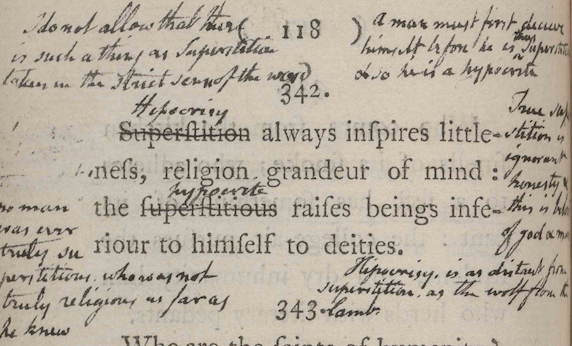 I do not allow that there
is such a thing as Superstition
taken in the Strict sense of the word
( 118 )
A man must first deceive
himself before he is thus Superstitious
& so he is a hypocrite
342.
Hipocrisy
Superſtition always inſpires little-
neſs, religion grandeur of mind :
hypocrite
the ſuperſtitious raiſes beings infe-
riour to himſelf to deities.
True sup
stition is
ignorant
honesty &
this is beloved
of god & man
no man
was ever
truly su
perstitious who was not
truly religious as far as
he knew
Hipocrisy. is as distinct from
superstition. as the wolf from the
lamb
343.
Who are the ſaints of humanity